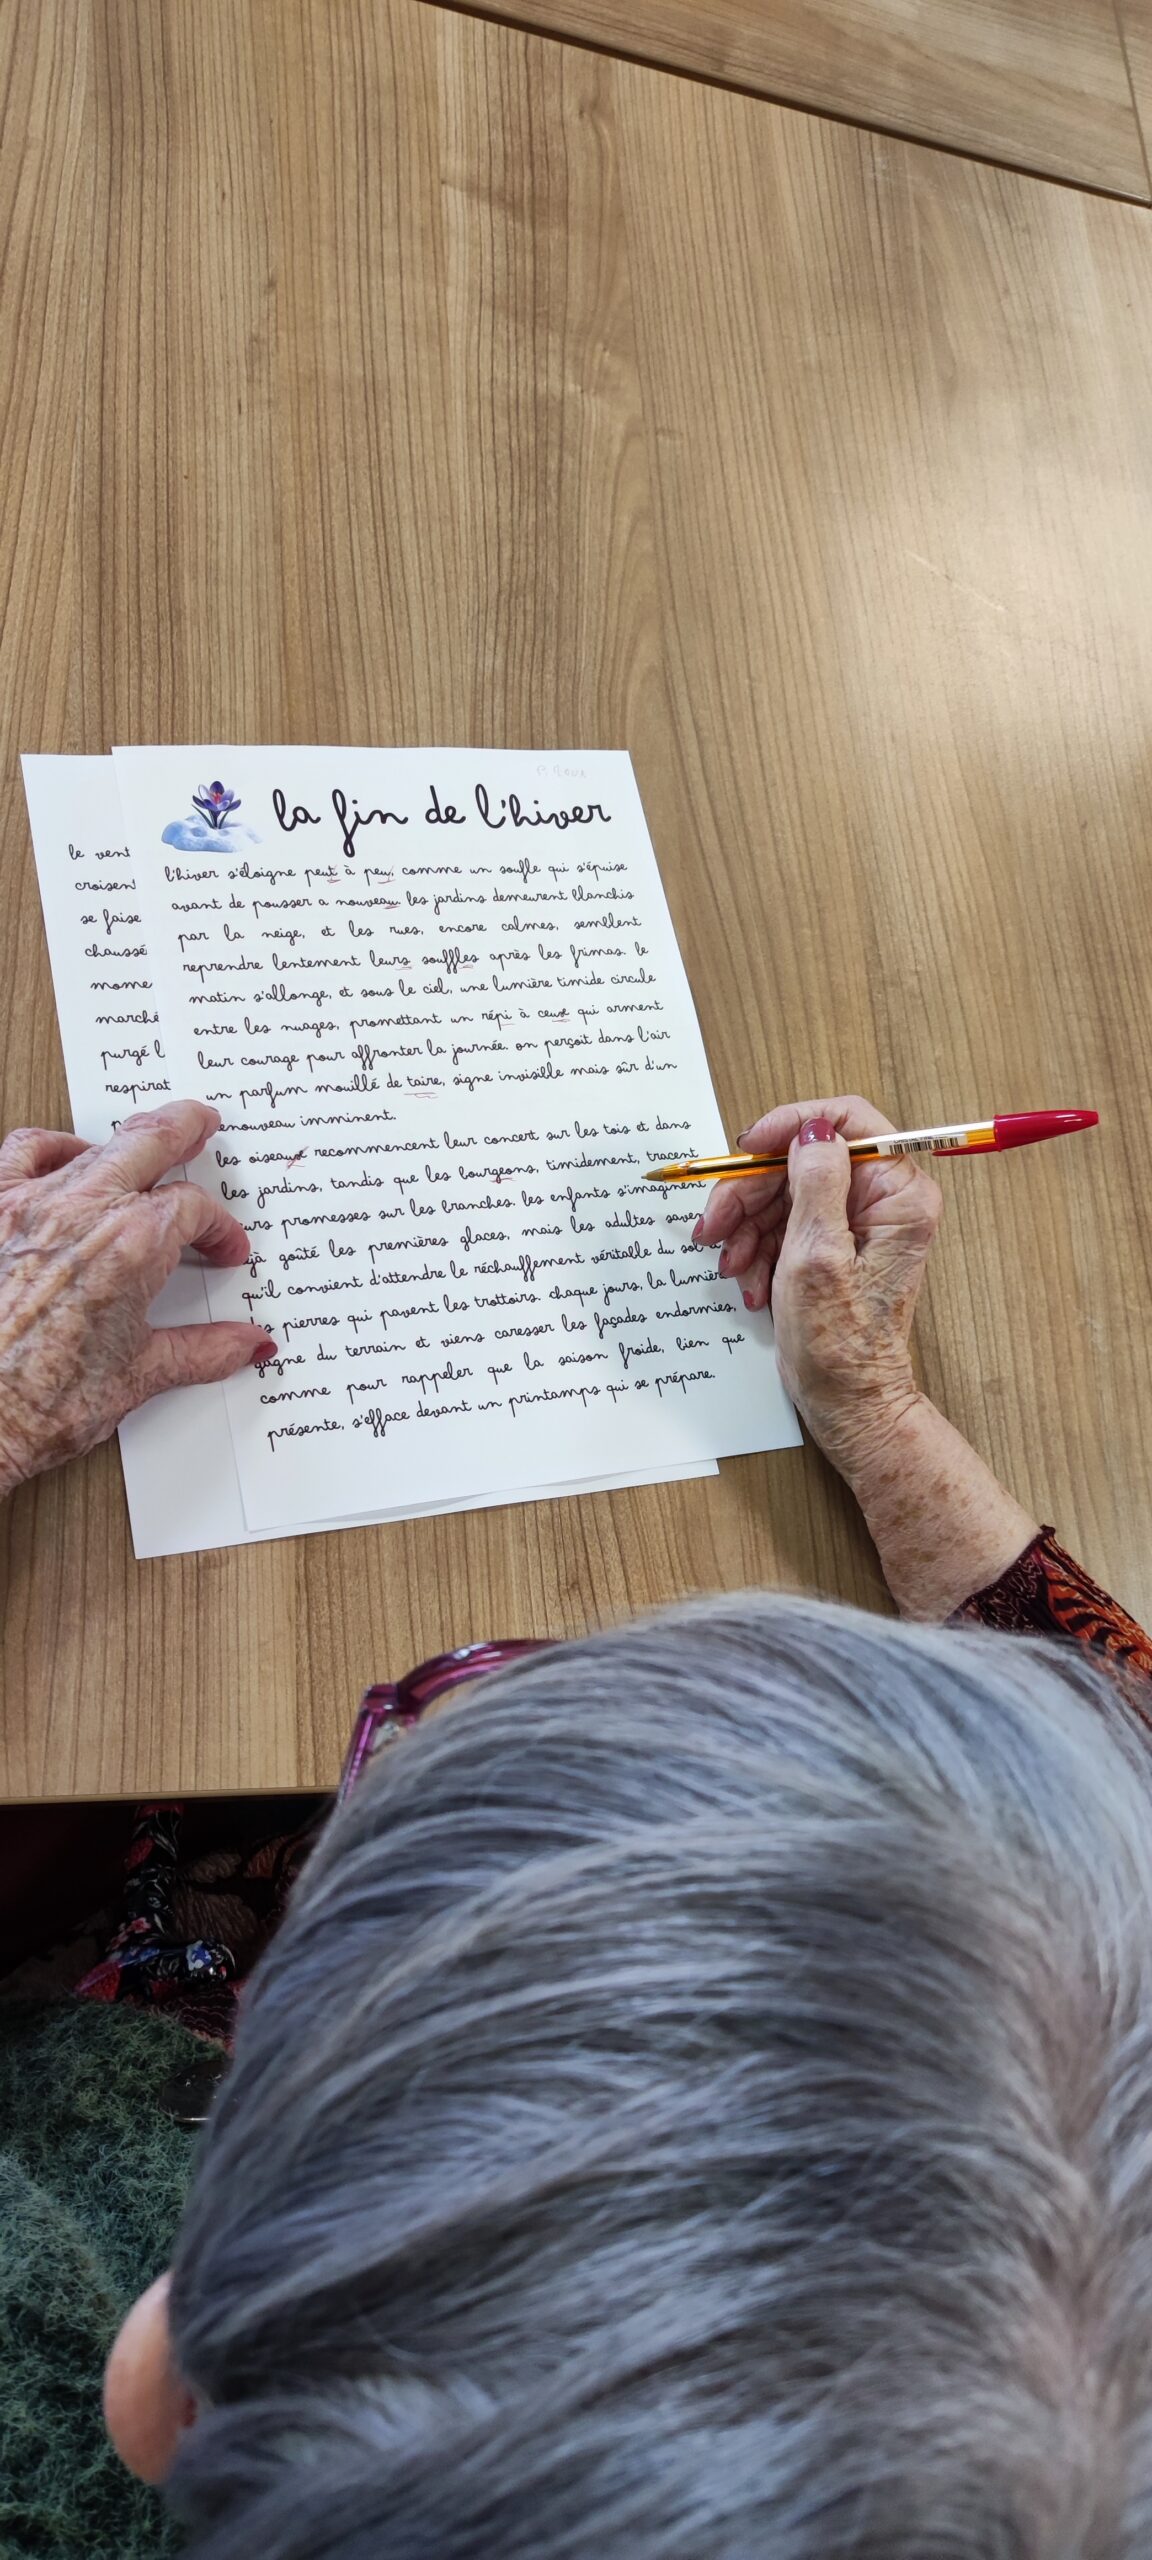 la fin de l'hiver
l'hiver s'éloigne peut à peu, comme un soufle qui s'épuise
avant de pousser a nouveau. les jardins demeurent blanchis
par la neige, et les rues, encore calmes, semblent
reprendre lentement leurs souffles après les frimas. le
matin s'allonge, et sous le ciel, une lumière timide circule
entre les nuages, promettant un répi à ceux qui arment
leur courage pour affronter la journée. on perçoit dans l'air
un parfum mouillé de taire, signe invisible mais sûr d'un
enouveau imminent.
les oiseaux recommencent leur concert sur les tois et dans
les jardins, tandis que les bourgeons, timidement, tracent
urs promesses sur les branches. les enfants s'imaginent
jà goûté les premières glaces, mais les adultes saven
qu'il convient d'attendre le réchauffement véritable du sol
pierres qui pavent les trottoirs. chaque jours, la lumièr
gagne du terrain et viens caresser les façades endormies,
comme pour rappeler que la saison froide, bien que
présente, s'efface devant un printamps qui se prépare.
le vent
croisen
se faise
chaussé
mome
marché
purgé l
respirat